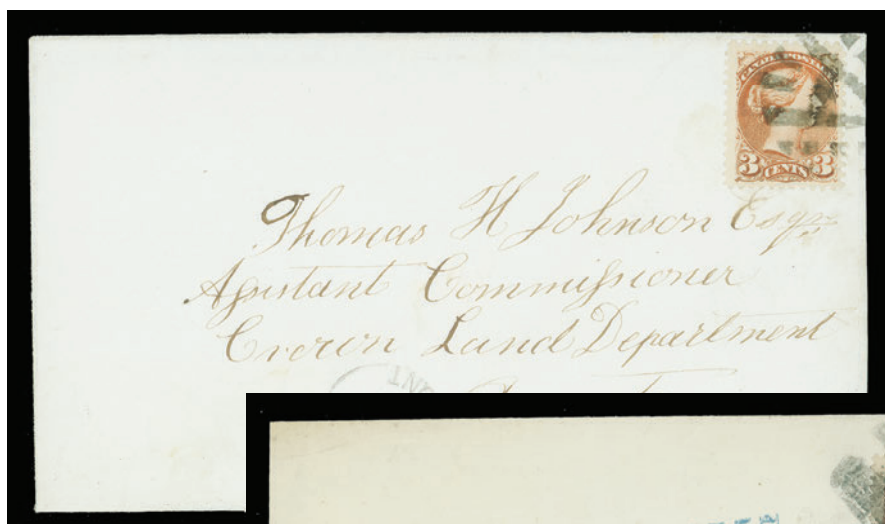 CANADA POSTAGE
3 CENTS 3
Thomas H Johnson Esqr
Assistant Commissioner
Crown Land Department
ONT